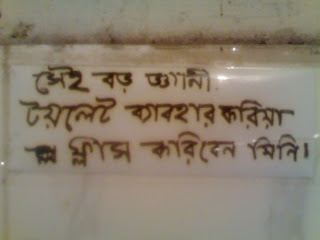 সেই বড় জ্ঞানী
টয়লেট ব্যবহার করিয়া
ফ্লাস করিবেন যিনি।